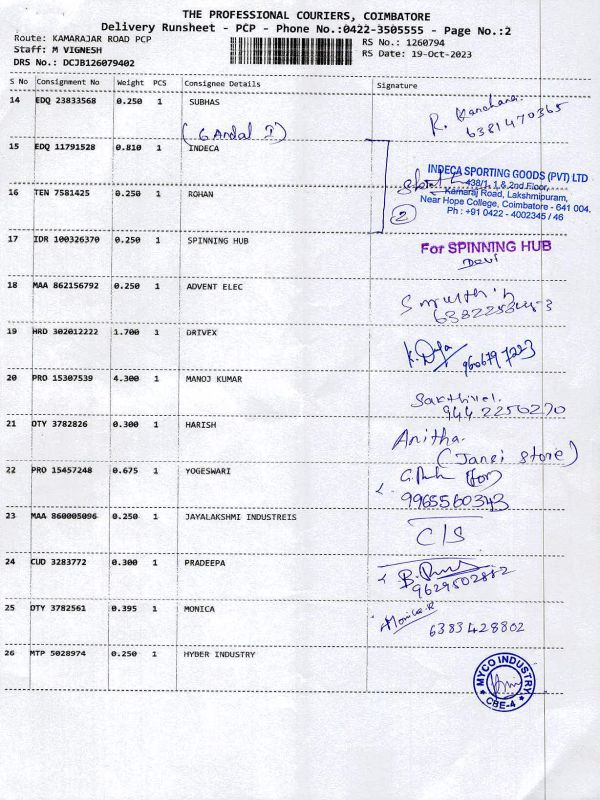 THE PROFESSIONAL COURIERS, COIMBATORE
Delivery Runsheet - PCP - Phone No.:0422-3505555 - Page No.:2
Route: KAMARAJAR ROAD PCP
RS No.: 1260794
Staff: M VIGNESH
RS Date: 19-Oct-2023
DRS No.: DCJB126079402
S No Consignment No Weight PCS Consignee Details Signature
14 EDQ 23833568 0.250 1 SUBHAS R. Kanchana
6381470365
(G Andal I)
15 EDQ 11791528 0.810 1 INDECA
INDECA SPORTING GOODS (PVT) LTD
438/1, 1 & 2nd Floor,
Kamaraj Road, Lakshmipuram,
Near Hope College, Coimbatore - 641 004.
Ph : +91 0422 - 4002345 / 46
16 TEN 7581425 0.250 1 ROHAN 2
17 IDR 100326370 0.250 1 SPINNING HUB For SPINNING HUB
Devi
18 MAA 862156792 0.250 1 ADVENT ELEC
19 HRD 302012222 1.700 1 DRIVEX
20 PRO 15307539 4.300 1 MANOJ KUMAR Sakthivel.
9442250270
21 OTY 3782826 0.300 1 HARISH Anitha.
(Jansi store)
22 PRO 15457248 0.675 1 YOGESWARI
9965560343
23 MAA 860005096 0.250 1 JAYALAKSHMI INDUSTREIS C/S
24 CUD 3283772 0.300 1 PRADEEPA
9629502882
25 OTY 3782561 0.395 1 MONICA Monica.R
6383428802
26 MTP 5028974 0.250 1 HYBER INDUSTRY
MYCO INDUSTRY
CBE-4